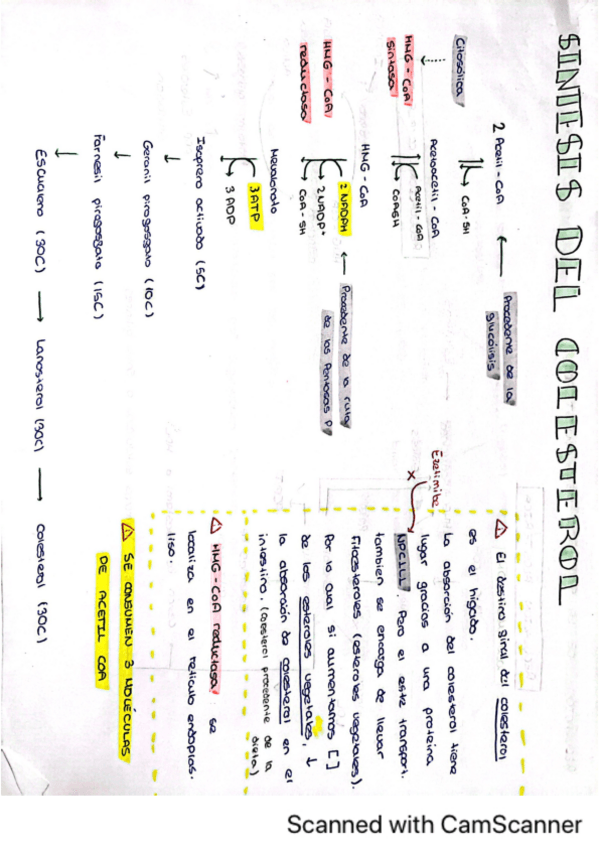 SINTESIS DEL COLESTEROL
2 Acetil - CoA
Procedente de la
glucólisis
Citosólica
CoA-SH
Acetoacetil - CoA
HMG - CoA
sintasa
Acetil - CoA
CoASH
HMG - CoA
HMG - CoA
reductasa
2 NADPH
2 NADP+
CoA - SH
Procedente de la ruta
de las Pentosas P
Mevalonato
3 ATP
3 ADP
Isopreno activado (5C)
Geranil pirofosfato (10C)
Farnesil pirofosfato (15C)
Escualeno (30C) → Lanosterol (30C) → Colesterol (30C)
Ezetimiba
x
⚠ El destino final del colesterol
es el hígado.
La absorción del colesterol tiene
lugar gracias a una proteina
NPC1L1. Pero el este transport.
tambien se encarga de llevar
Fitoesteroles (esteroles vegetales).
Por lo cual si aumentamos [ ]
de los esteroles vegetales, ↓
la absorción de colesterol en el
intestino. (colesterol procedente de la
dieta)
⚠ HMG - CoA reductasa se
localiza en el retículo endoplas.
liso.
⚠ SE CONSUMEN 3 MOLÉCULAS
DE ACETIL COA
Scanned with CamScanner